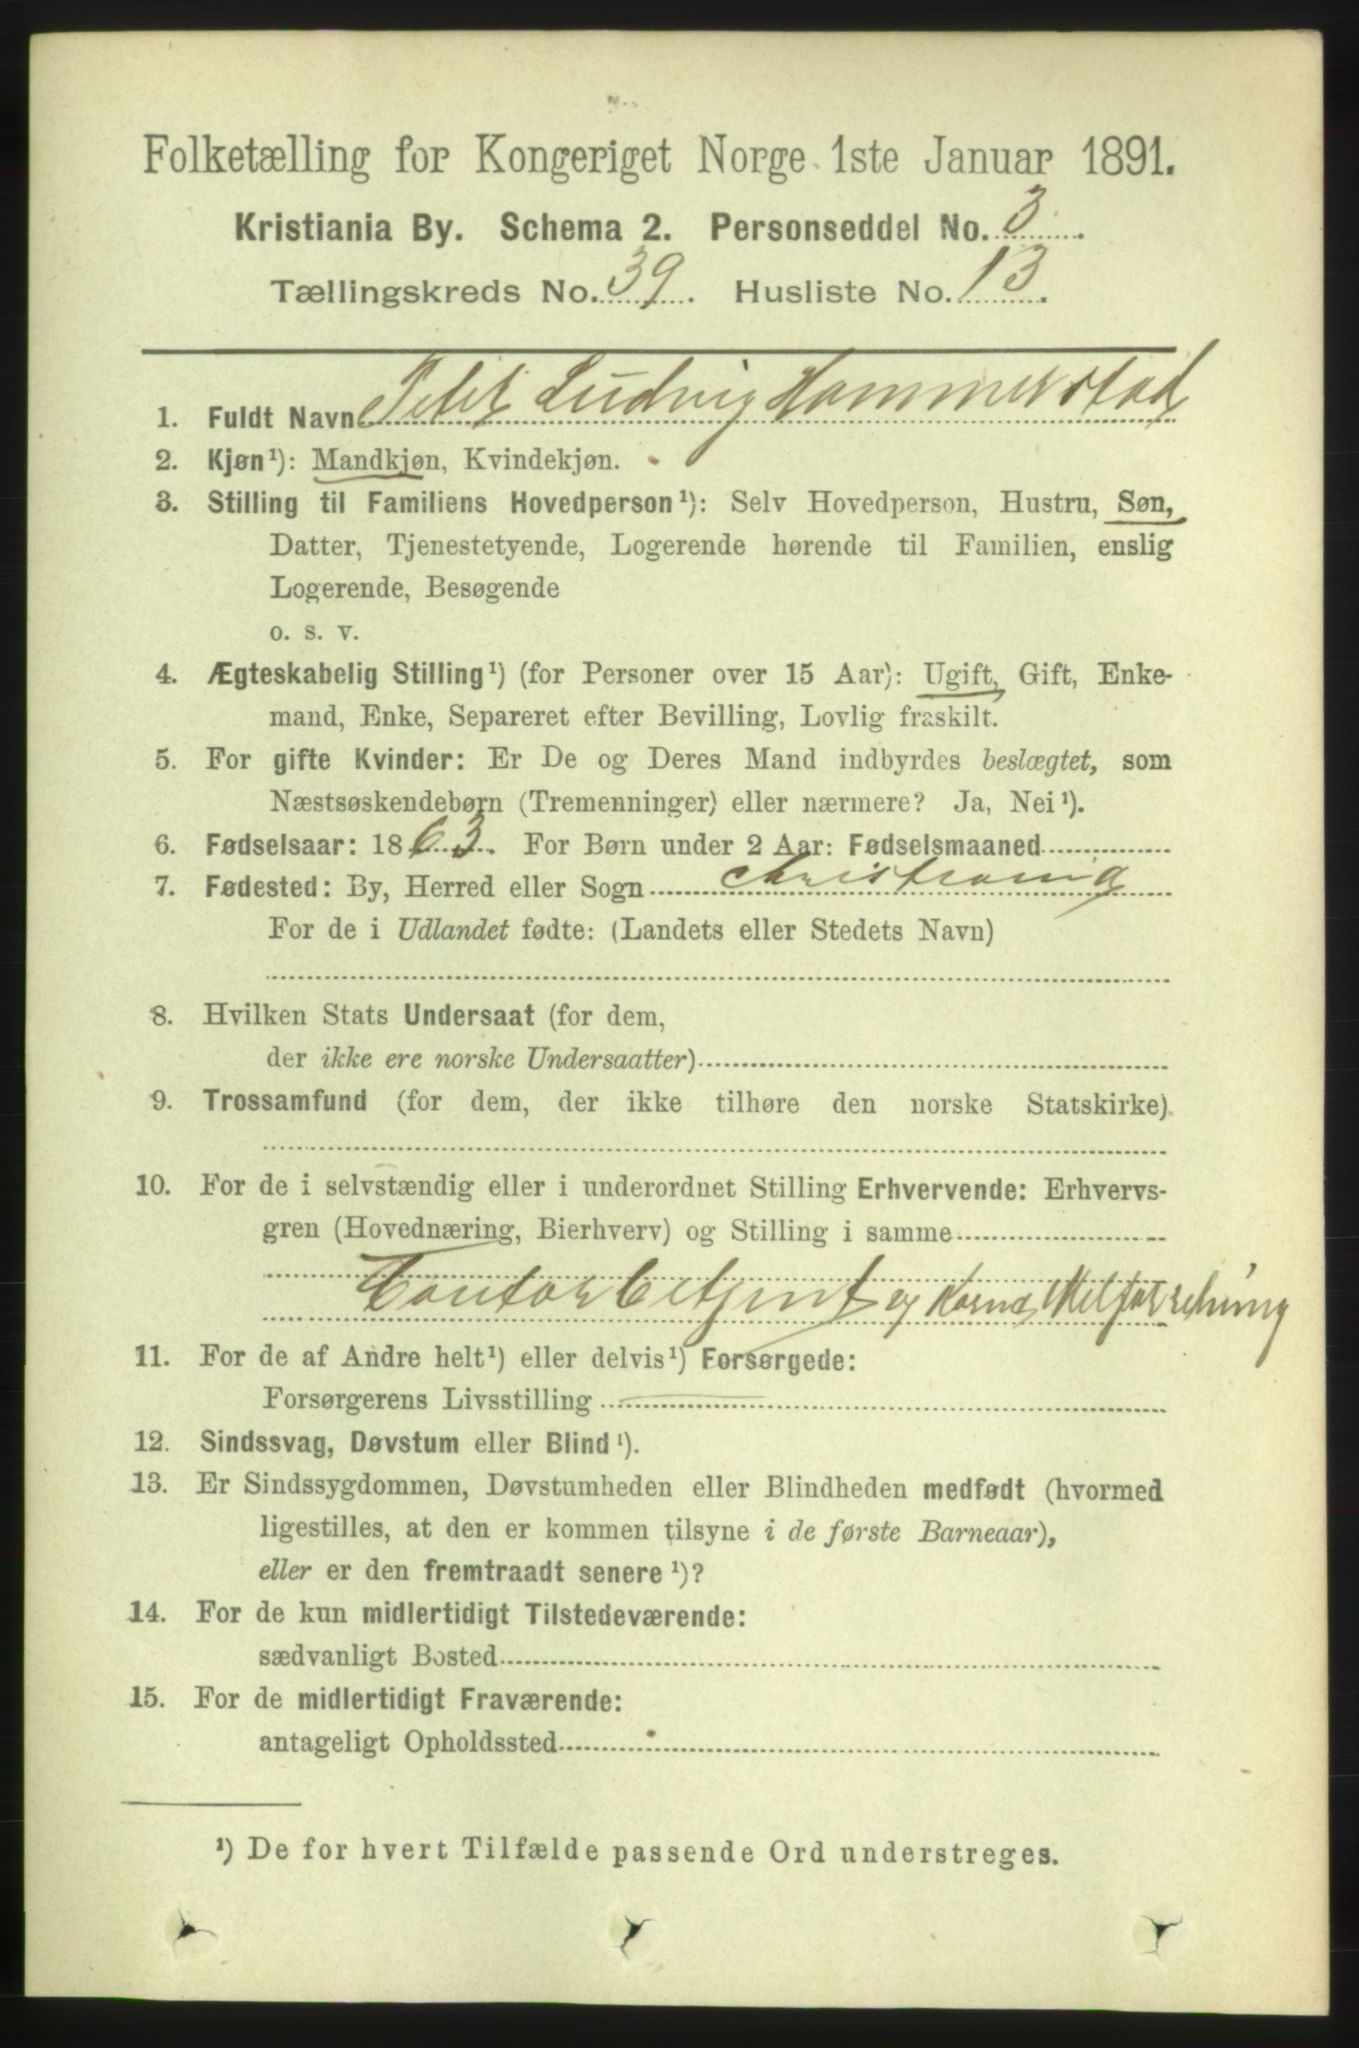 Folketælling for Kongeriget Norge 1ste Januar 1891.
Kristiania By. Schema 2. Personseddel No. 3.
Tællingskreds No. 39. Husliste No. 13.
1. Fuldt Navn Peter Ludvig Hammerstad
2. Kjøn¹): Mandkjøn, Kvindekjøn.
3. Stilling til Familiens Hovedperson¹): Selv Hovedperson, Hustru, Søn,
Datter, Tjenestetyende, Logerende hørende til Familien, enslig
Logerende, Besøgende
o. s. v.
4. Ægteskabelig Stilling¹) (for Personer over 15 Aar): Ugift, Gift, Enke-
mand, Enke, Separeret efter Bevilling, Lovlig fraskilt.
5. For gifte Kvinder: Er De og Deres Mand indbyrdes beslægtet, som
Næstsøskendebørn (Tremenninger) eller nærmere? Ja, Nei¹).
6. Fødselsaar: 1863. For Børn under 2 Aar: Fødselsmaaned
7. Fødested: By, Herred eller Sogn Christiania
For de i Udlandet fødte: (Landets eller Stedets Navn)
8. Hvilken Stats Undersaat (for dem,
der ikke ere norske Undersaatter)
9. Trossamfund (for dem, der ikke tilhøre den norske Statskirke)
10. For de i selvstændig eller i underordnet Stilling Erhvervende: Erhvervs-
gren (Hovednæring, Bierhverv) og Stilling i samme
Contorbetjent og Korn
11. For de af Andre helt¹) eller delvis¹) Forsørgede:
Forsørgerens Livsstilling
12. Sindssvag, Døvstum eller Blind¹).
13. Er Sindssygdommen, Døvstumheden eller Blindheden medfødt (hvormed
ligestilles, at den er kommen tilsyne i de første Barneaar),
eller er den fremtraadt senere¹)?
14. For de kun midlertidigt Tilstedeværende:
sædvanligt Bosted
15. For de midlertidigt Fraværende:
antageligt Opholdssted
¹) De for hvert Tilfælde passende Ord understreges.